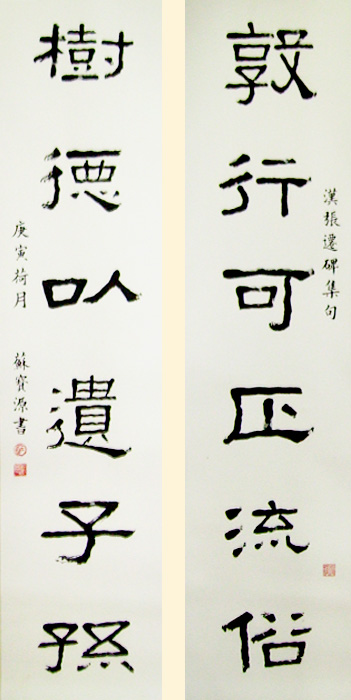 敦行可正流俗
漢張遷碑集句
樹德以遺子孫
庚寅荷月 蘇寶源書